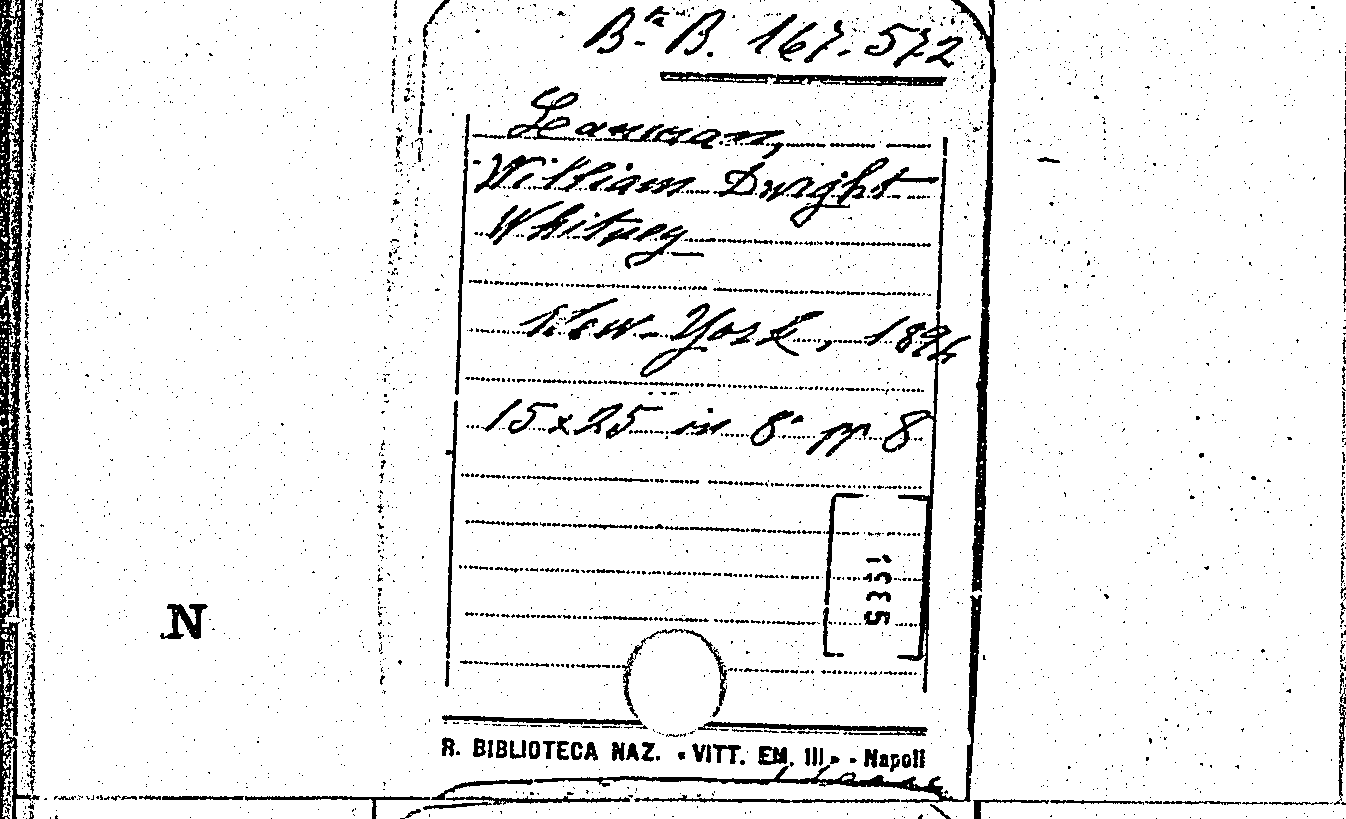 Bta B. 167.572
Lanman,
William Dwight
Whitney
New-York, 1894
15x25 in 8° pp 8
N
R. BIBLIOTECA NAZ. «VITT. EM. III» - Napoli